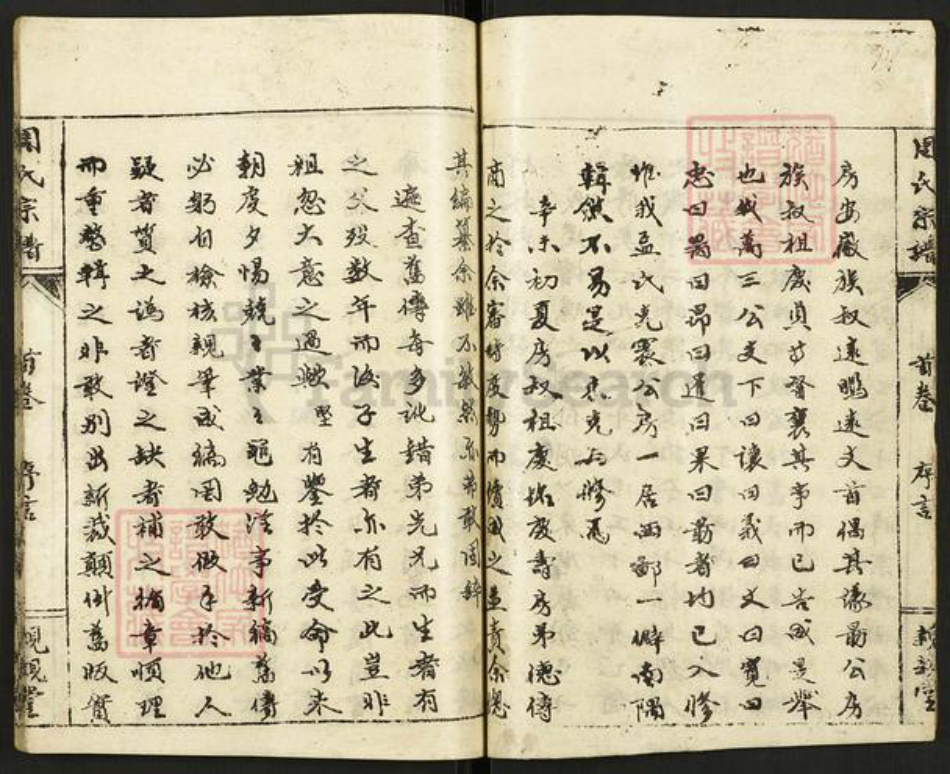 周氏宗譜
首卷
序言
親親堂
房安嚴族叔遠鵬遠文首偶其讓勗公房
族叔祖慶貞等督襄其事而已告成是舉
也我萬三公支下曰讓曰義曰文曰寬曰
忠曰勗曰昂曰暹曰果曰勛者均已入修
惟我孟弍克寰公房一居西鄙一僻南隅
輯然不易是以未克与修焉
辛未初夏房叔祖慶 慶壽房弟德傳
商之於余審時度勢而 成之並責余總
其編纂余雖不敏然亦弗敢固辭
遍查舊傳每多訛錯弟先兄而生者有
之父歿數年而後子生者亦有之此豈非
粗忽大意之過歟堅有鑒於此受命以來
朝度夕惕兢兢業業黽勉從事新編舊譜
必躬自檢核親筆成編罔敢假手於他人
疑者質之譌者證之缺者補之循章順理
而重整輯之非敢別出新裁顛倒舊版實
周氏宗譜
首卷
序言
親親堂
FamilySearch